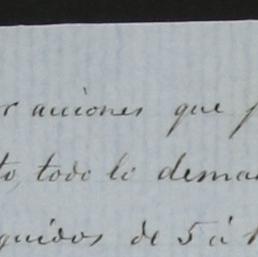 r acciones que
to, todo lo dema
quidos de 5 á